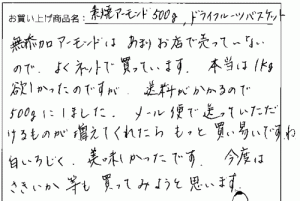 お買い上げ商品名：素焼アーモンド500g，ドライフルーツバスケット
無添加アーモンドは あまりお店で売っていない
ので、よくネットで買っています。本当は1kg
欲しかったのですが、送料がかかるので
500gにしました。メール便で送っていただ
けるものが増えてくれたら もっと買い易いですね
白いちじく、美味しかったです。今度は
さきいか等も買ってみようと思います。